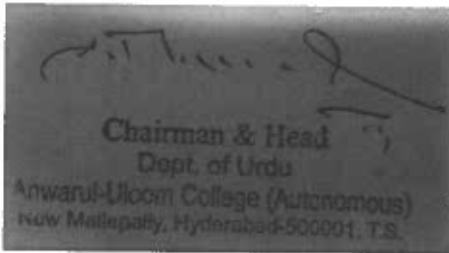 Chairman & Head
Dept. of Urdu
Anwarul-Uloom College (Autonomous)
New Mallepally, Hyderabad-500001, T.S.